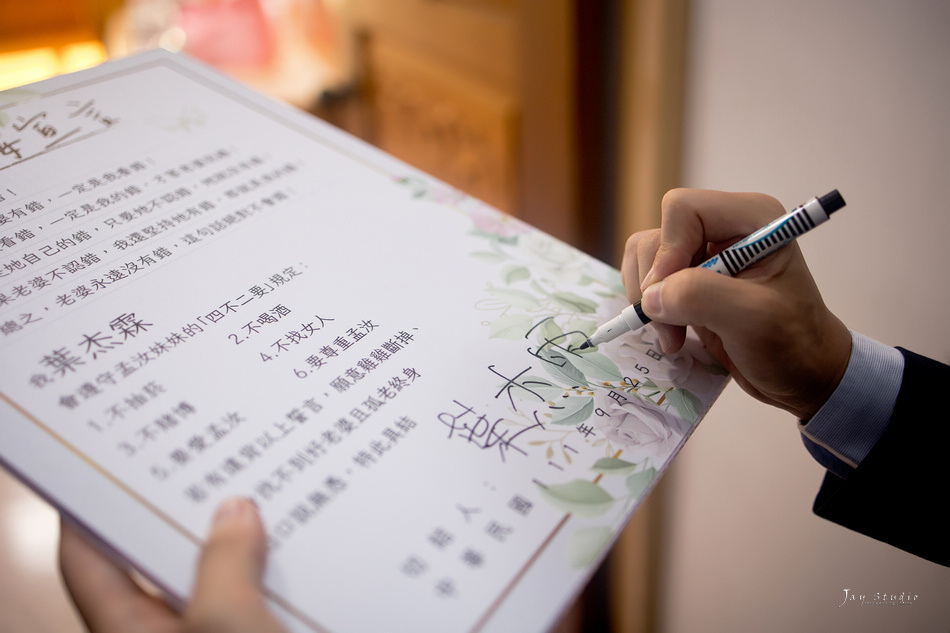 宣言
錯！
婆有錯，一定是我看錯！
看錯，一定是我的錯，才害老婆犯錯！
是她自己的錯，只要她不認錯，她就沒有錯，
果老婆不認錯，我還堅持她有錯，那就是我的錯！
總之，老婆永遠沒有錯，這句話絕對不會錯！
我 葉杰霖
會遵守孟汝妹妹的「四不二要」規定：
1.不抽菸 2.不喝酒
3.不賭博 4.不找女人
5.要愛孟汝 6.要尊重孟汝
若有違背以上誓言，願意雞雞斷掉、
找不到好老婆且孤老終身
口說無憑，特此具結
切結人
葉杰
中華民國 111年9月25日
Jay Studio